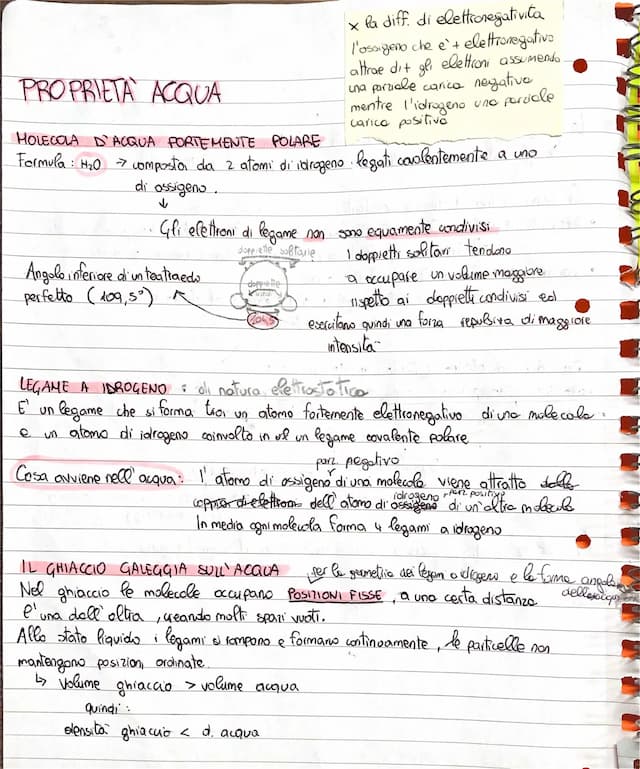 × la diff. di elettronegatività
l'ossigeno che è + elettronegativo
attrae di + gli elettroni assumendo
una parziale carica negativa
mentre l'idrogeno una parziale
carica positiva
PROPRIETÀ ACQUA
MOLECOLA D'ACQUA FORTEMENTE POLARE
Formula: H₂O → composta da 2 atomi di idrogeno legati covalentemente a uno
di ossigeno.
↓
Gli elettroni di legame non sono equamente condivisi
doppiette solitarie
doppiette
104,5
Angolo inferiore di un teatraedo
perfetto (109,5°)
I doppietti solitari tendono
a occupare un volume maggiore
rispetto ai doppietti condivisi ed
esercitano quindi una forza repulsiva di maggiore
intensità
LEGAME A IDROGENO: di natura elettrostatica
E' un legame che si forma tra un atomo fortemente elettronegativo di una molecola
e un atomo di idrogeno coinvolto in un legame covalente polare
Cosa avviene nell'acqua: l'atomo di ossigeno parz. negativo di una molecola viene attratto dalle
coppie di elettroni dell'atomo di ossigeno idrogeno parz. positivo di un'altra molecola
In media ogni molecola forma 4 legami a idrogeno
IL GHIACCIO GALEGGIA SULL'ACQUA per la geometria dei legami a idrogeno e la forma angolare
Nel ghiaccio le molecole occupano POSIZIONI FISSE, a una certa distanza
l'una dall'altra, creando molti spazi vuoti.
Allo stato liquido i legami si rompono e formano continuamente, le particelle non
mantengono posizioni ordinate.
↳ volume ghiaccio > volume acqua
quindi:
densità ghiaccio < d. acqua